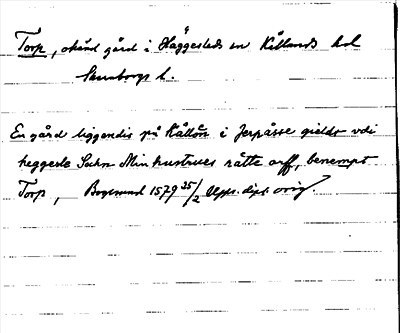 Torp, okänd gård i Häggesleds sn Kållands hd
Skaraborgs l.
En gård liggendis på Kållan i Jerpåsse gieldt vdi
heggesle Sockn Min hustrues rätte arff, benempt
Torp, Bogesund 1579 25/2 Upps. dipl. orig